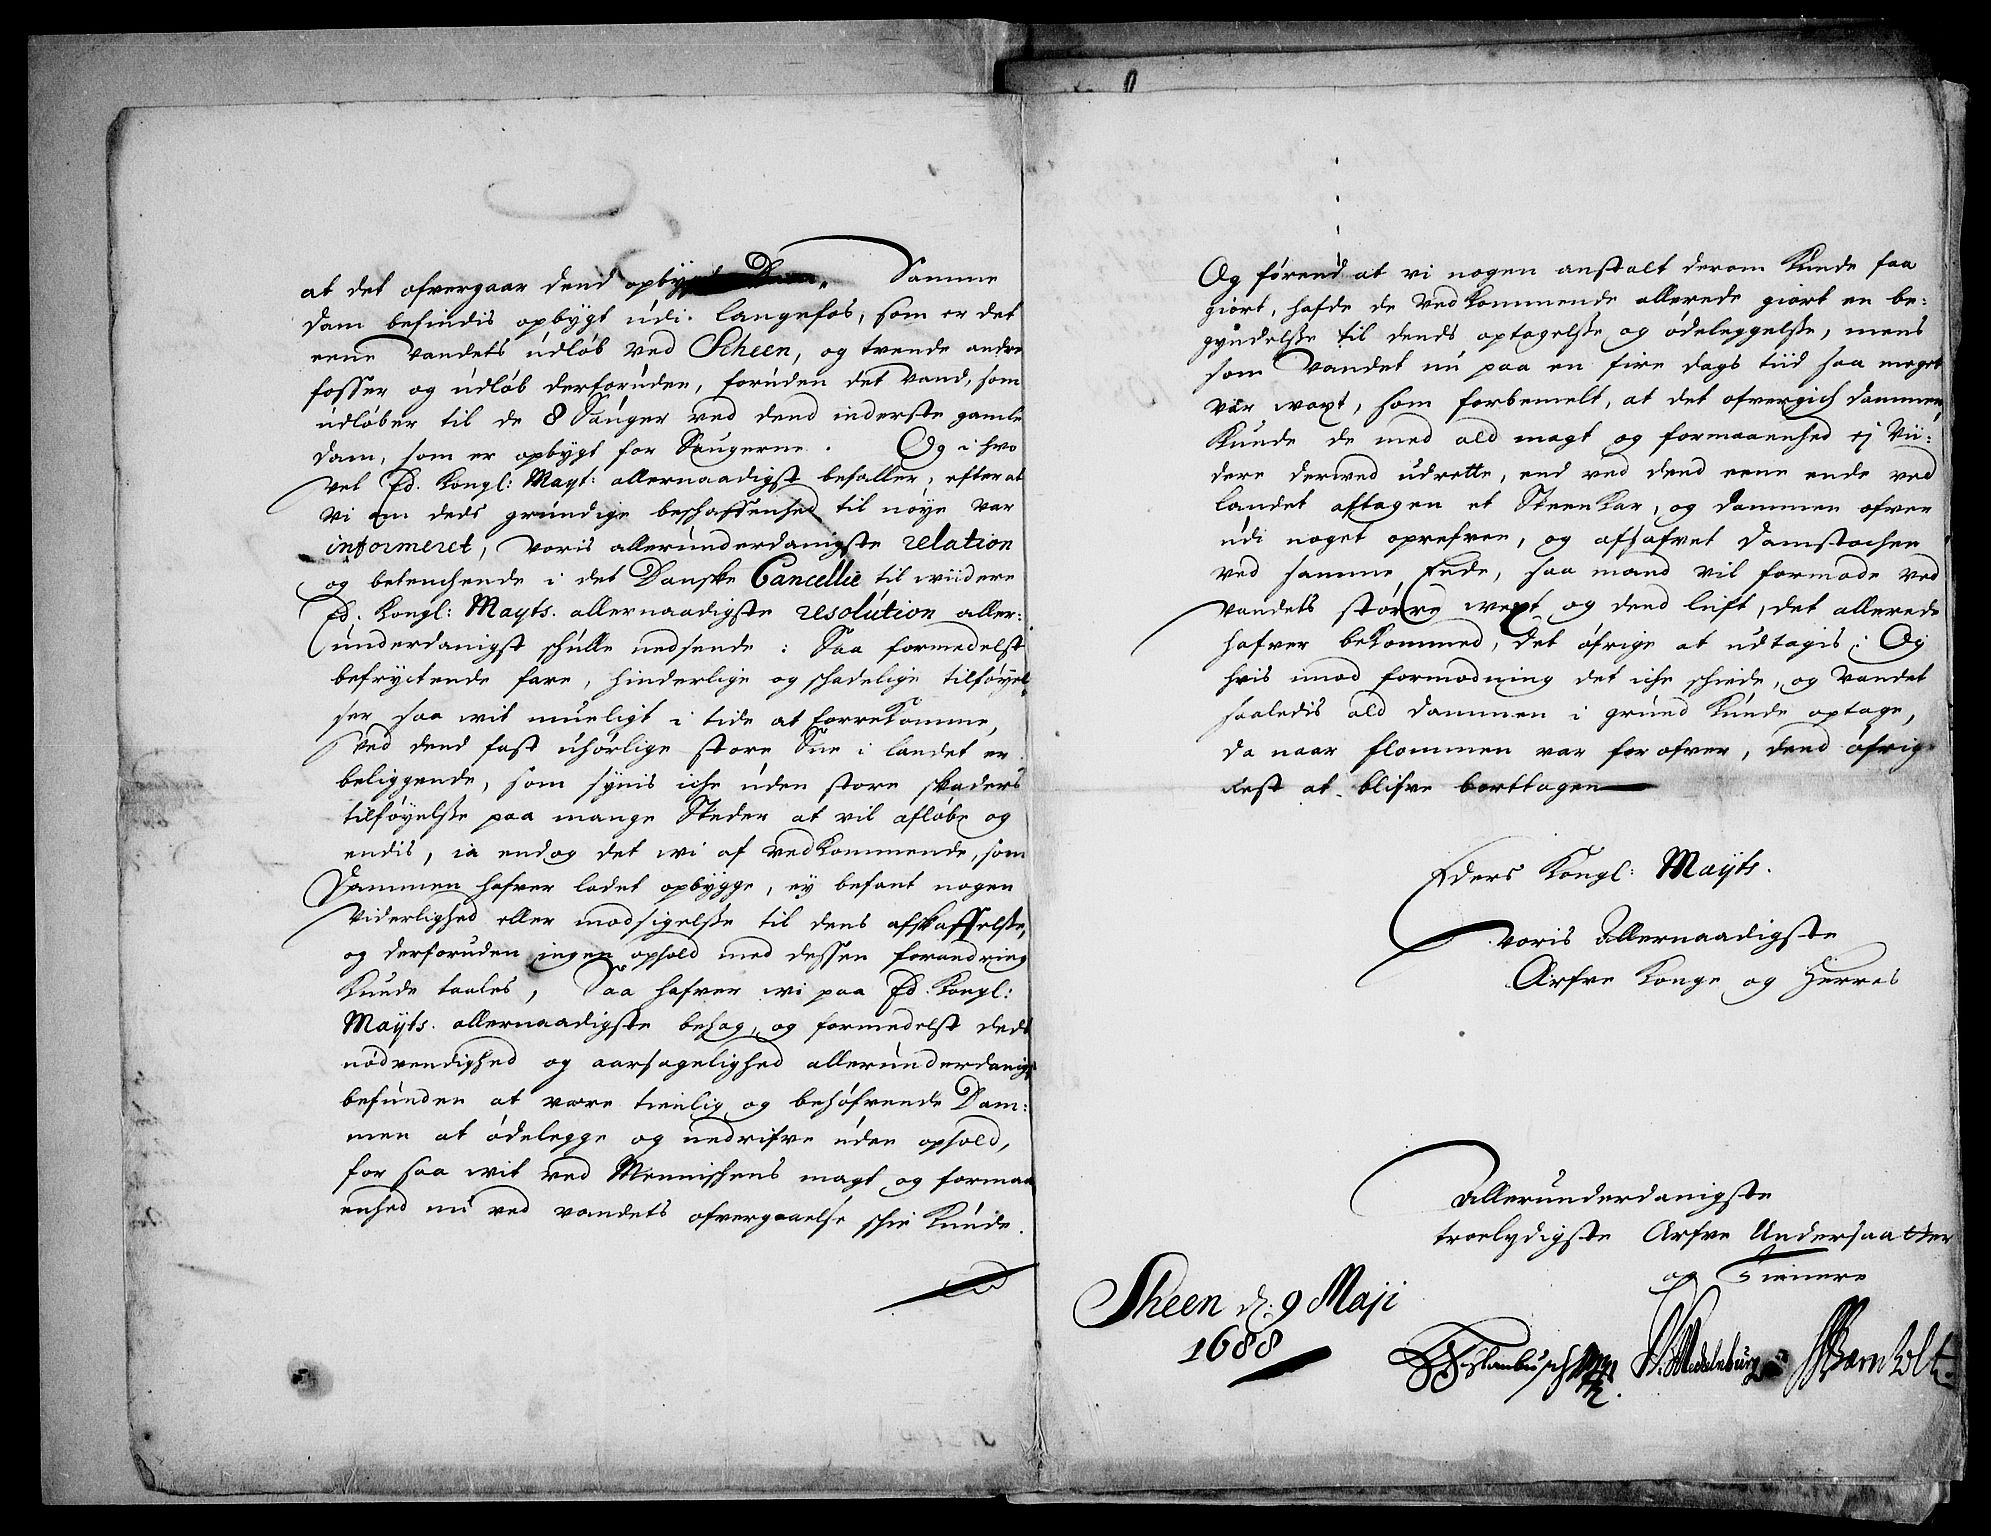 at det ofvergaar dend opbygt Dam. Samme
Dam befindis opbygt udi Langefos, som er det
eene Vandets udløb ved Scheen, og trende andre
fosser og udløb derforuden, foruden det Vand, som
udløber til de 8 Sauger ved dend inderste gamle
Dam, som er opbygt for Saugerne. Og i hvo
vel Ed. Kongl: Mayt: allernaadigst befaller, efter at
vi om deds grundige beschaffenhed til nøye var
informeret, voris allerunderdanigste relation
og betenchende i det Danske Cancellie til wiidere
Ed. Kongl: Mayts. allernaadigste resolution aller:
underdanigst schulle nedsende: Saa formedelst
befryctende fare, hinderlige og schadelige tilføyel
ser saa wit mueligt i tide at forrekomme,
ved dend fast uhørlige store Snee i landet er
beliggende, som synis iche uden store skaders
tilføyelsse paa mange Steder at vil afløbe og
endis, ia endog det wi af vedkommende, som
Dammen hafver ladet opbygge, ey befant nogen
Viderlighed eller modsigelsse til dens afskaffelsse,
og derforuden ingen ophold med dessen forandring
kunde taales, Saa hafver wi paa Ed. Kongl:
Mayts. allernaadigste behag, og formedelst deds
nødvendighed og aarsagelighed allerunderdanigst
befunden at være tienlig og behøfvende Dam:
men at ødelegge og nedrifve uden ophold,
for saa wit ved Mennischens magt og formaa
enhed nu ved vandets ofvergaaelse schee kunde.
Og førend at vi nogen anstalt derom kunde faa
giort, hafde de vedkommende allerede giort en be:
gyndelsse til dends optagelsse og ødeleggelsse, mens
som Vandet nu paa en fire dags tiid saa meget
var woxt, som forbemelt, at det ofvergich dammen,
kunde de med ald magt og formaaenhed ej vii:
dere derwed udrette, end ved dend eene ende ved
landet aftagen et Steenkar, og dammen ofven
udi noget oprefven, og afhafvet Damstochen
ved samme Ende, saa mand vil formode ved
vandets større wext og dend luft, det allerede
hafver bekommed, det øfrige at udtagis: Og
hvis imod formodning det iche schiede, og vandet
saaledis ald dammen i grund kunde optage,
da naar flommen var for ofver, dend øfrige
rest at blifve borttagen
Eders Kongl: Mayts.
voris Allernaadigste
Arfve Konge og Herres
Allerunderdanigste
troelydigste Arfve Undersaatter
og Tienere
Sheen d: 9 Maji
1688